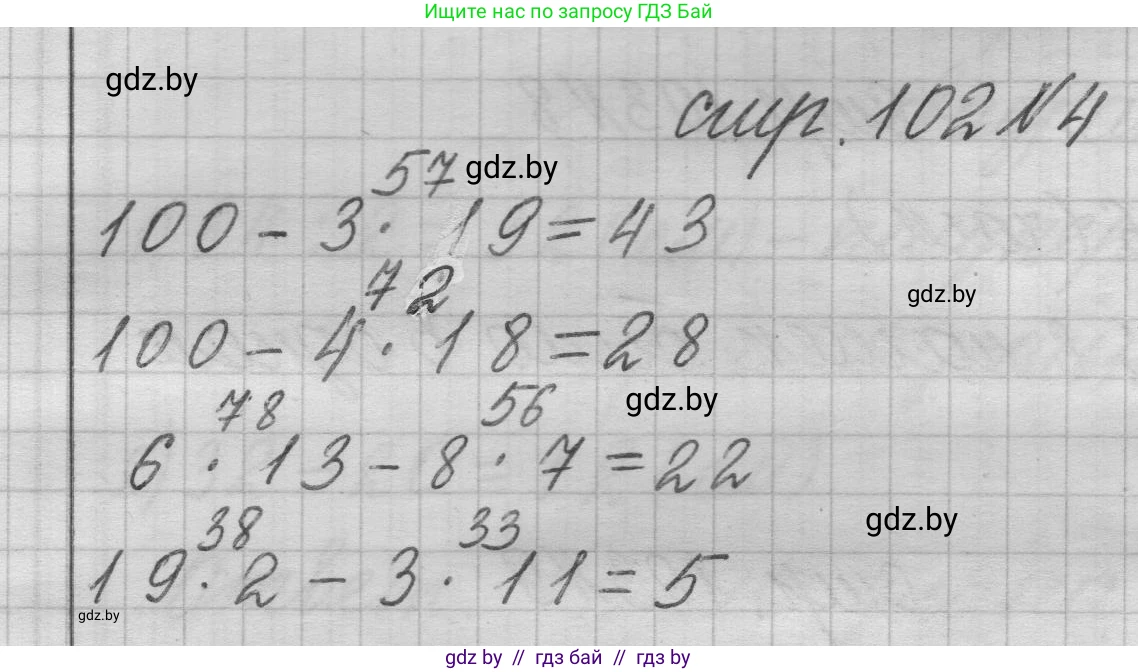 Ищите нас по запросу ГДЗ Бай
gdz.by
стр. 102 №4
57 gdz.by
100 - 3 · 19 = 43
72
gdz.by
100 - 4 · 18 = 28
78 56 gdz.by
6 · 13 - 8 · 7 = 22
38 33 gdz.by
19 · 2 - 3 · 11 = 5
gdz.by
gdz by // гдз бай // гдз by